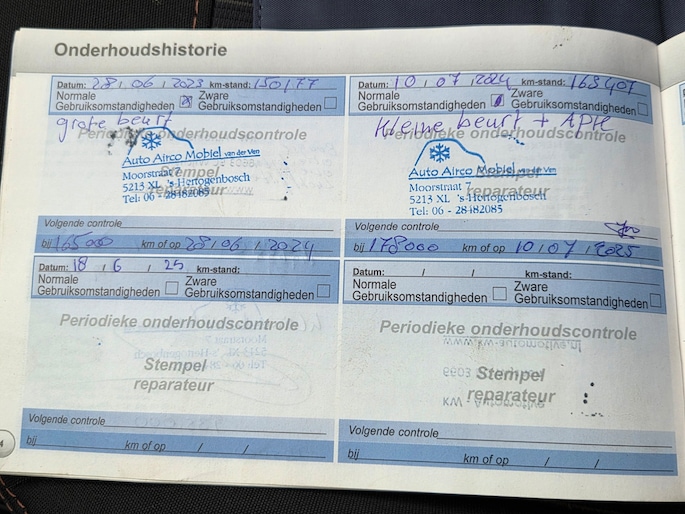 Onderhoudshistorie
Datum: 28 / 06 / 2023 km-stand: 150177
Normale Gebruiksomstandigheden Zware Gebruiksomstandigheden
grote beurt
Periodieke onderhoudscontrole
Auto Airco Mobiel van der Ven
Moorstraat 7
5213 XL 's-Hertogenbosch
Tel: 06 - 28482085
Stempel
reparateur
Volgende controle
bij 165000 km of op 28 / 06 / 2024
Datum: 10 / 07 / 2024 km-stand: 163407
Normale Gebruiksomstandigheden Zware Gebruiksomstandigheden
Kleine beurt + APK
Periodieke onderhoudscontrole
Auto Airco Mobiel van der Ven
Moorstraat 7
5213 XL 's-Hertogenbosch
Tel: 06 - 28482085
Stempel
reparateur
Volgende controle
bij 178000 km of op 10 / 07 / 2025
Datum: 18 / 6 / 25 km-stand:
Normale Gebruiksomstandigheden Zware Gebruiksomstandigheden
Periodieke onderhoudscontrole
Stempel
reparateur
Volgende controle
bij km of op / /
Datum: / / km-stand:
Normale Gebruiksomstandigheden Zware Gebruiksomstandigheden
Periodieke onderhoudscontrole
Stempel
reparateur
Volgende controle
bij km of op / /
4